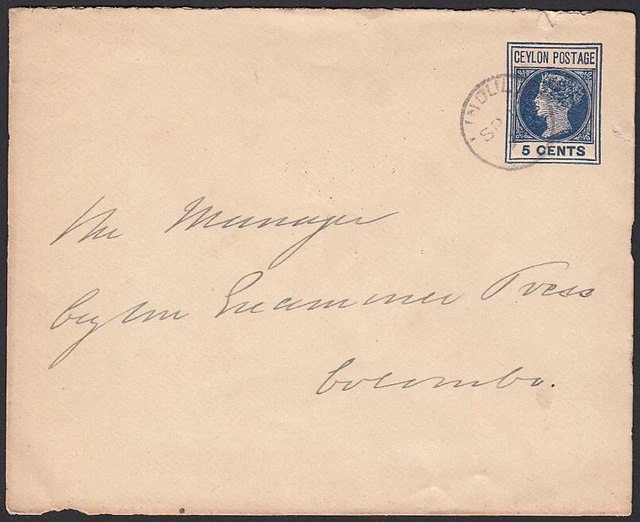 CEYLON POSTAGE
5 CENTS
LINDUL
SP
The Manager
Ceylon Examiner Press
Colombo.